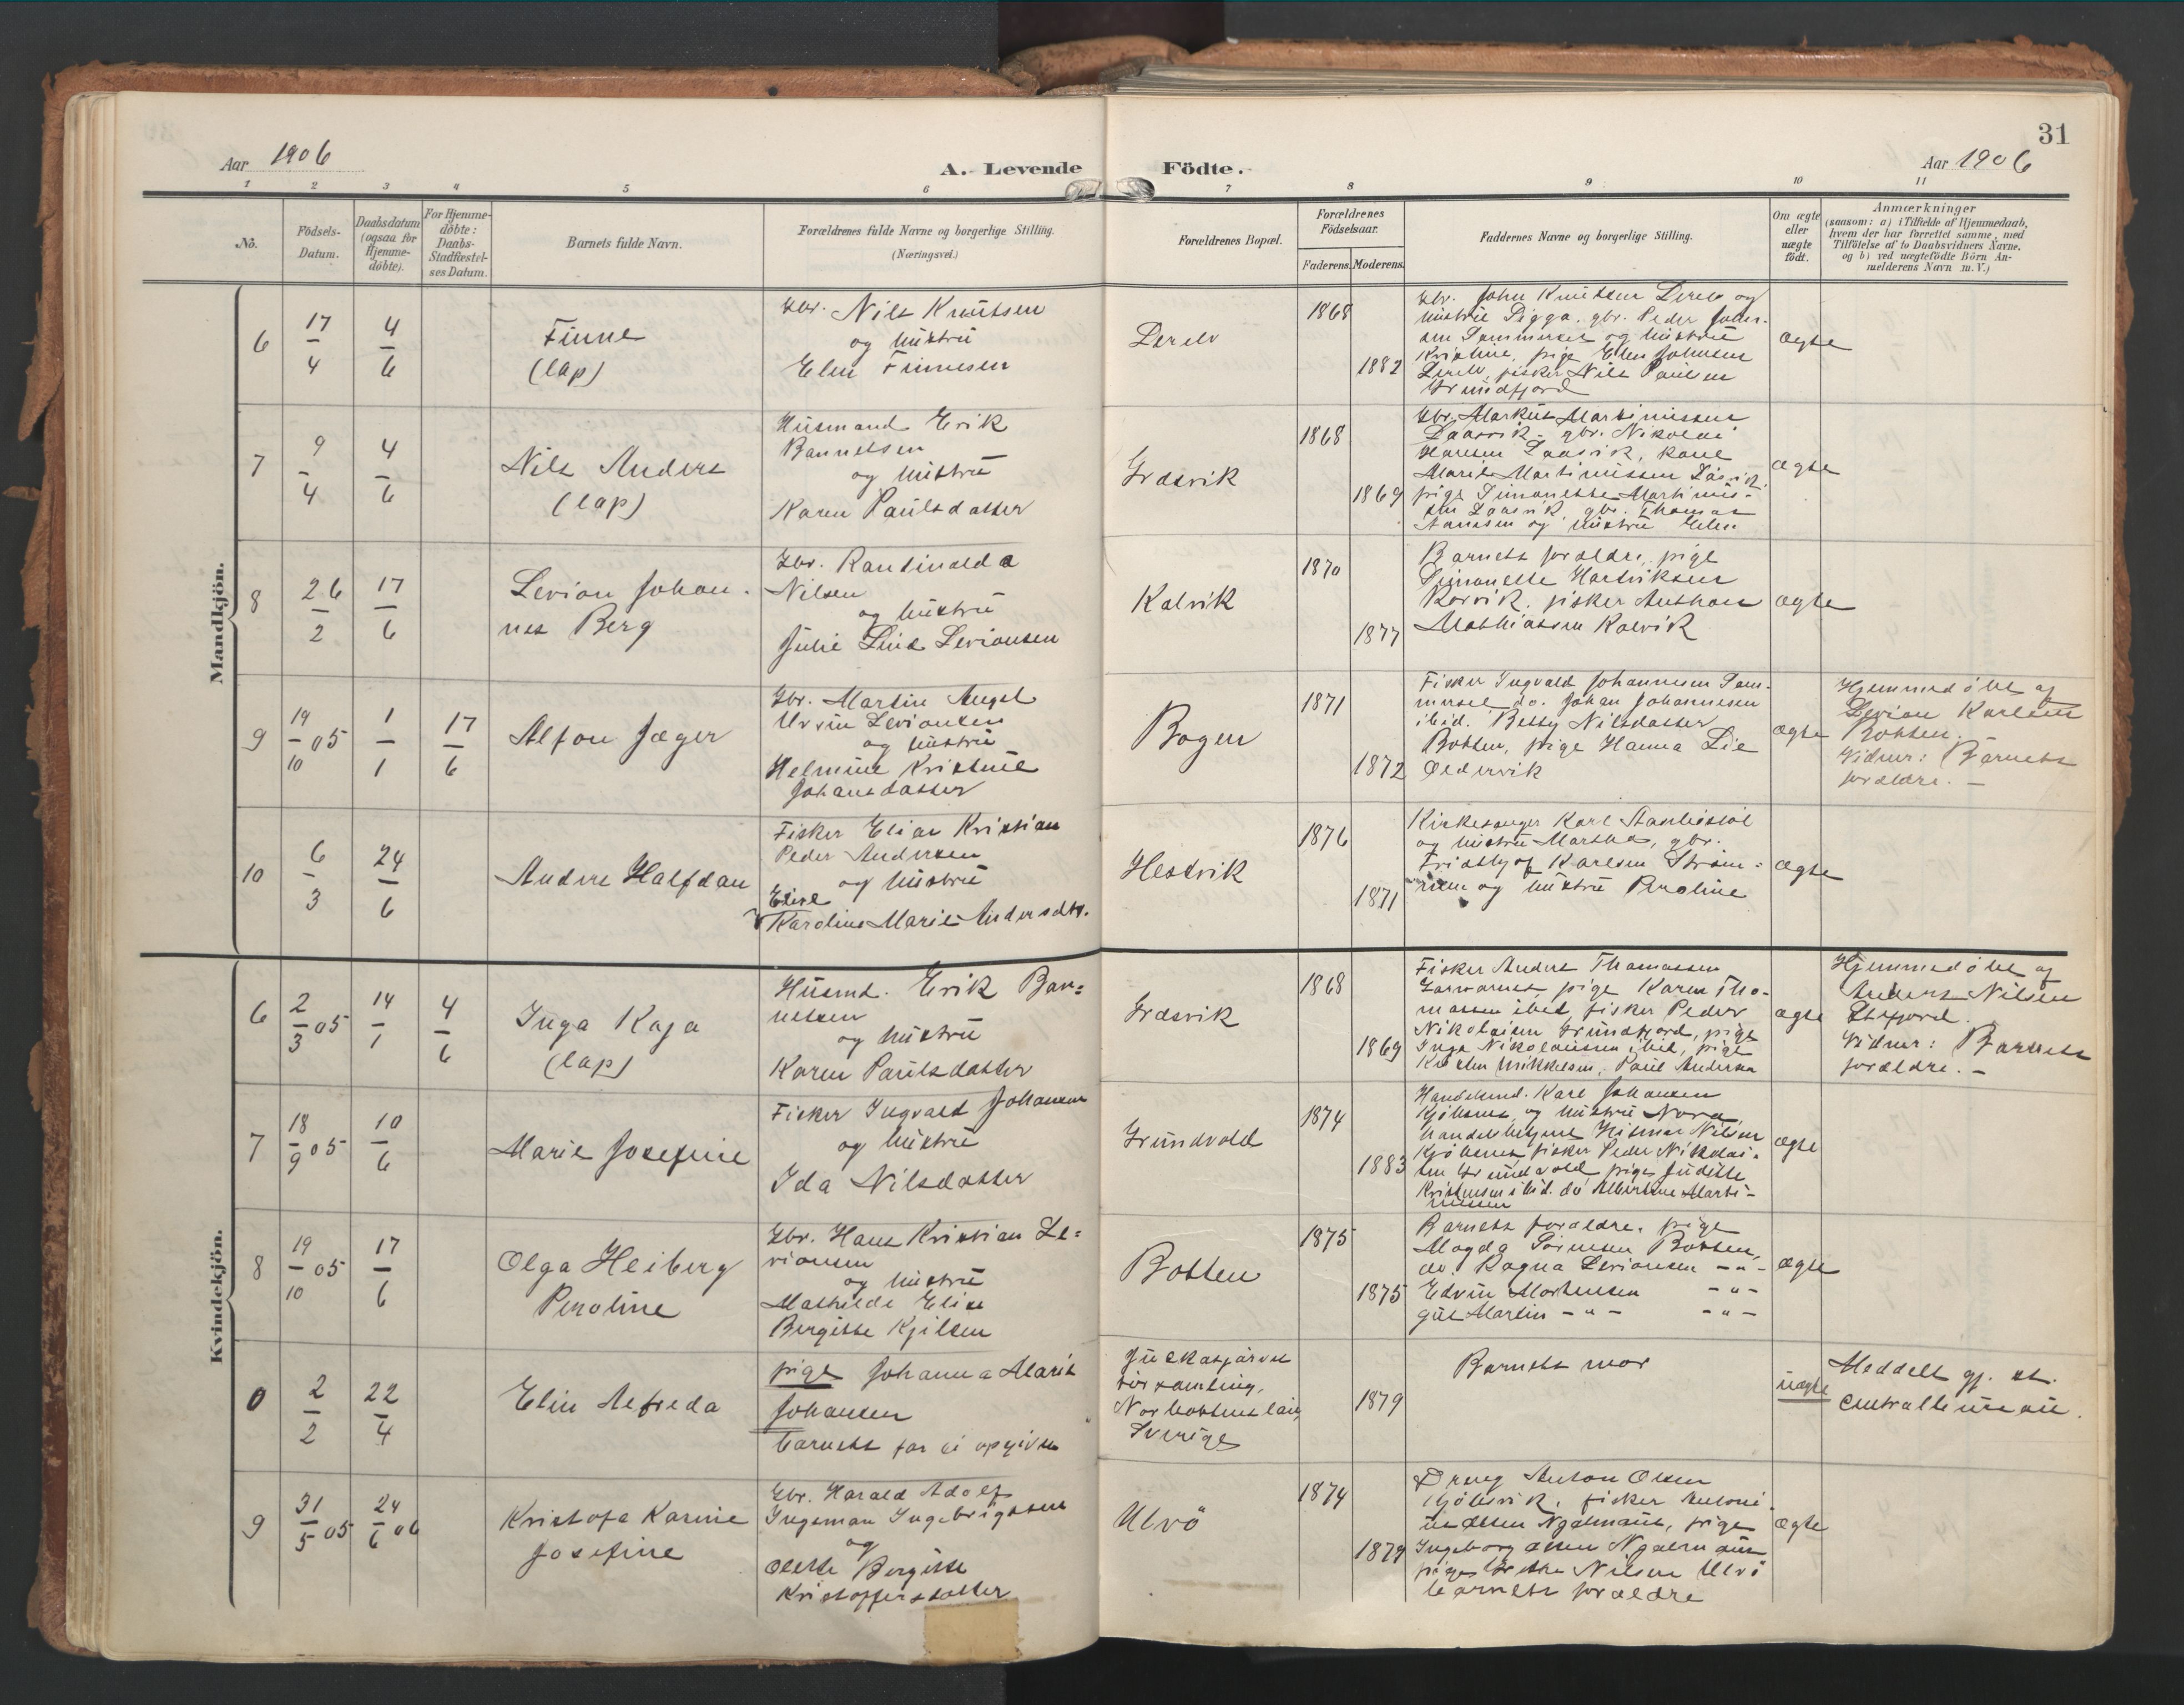 31
Aar 1906
A. Levende Födte.
Aar 1906
1 2 3 4 5 6 7 8 9 10 11
No.
Födsels-
Datum.
Daabsdatum
(ogsaa for
Hjemme-
döbte).
For Hjemme-
döbte:
Daabs-
Stadfæstel-
ses Datum.
Barnets fulde Navn.
Forældrenes fulde Navne og borgerlige Stilling.
(Næringsvei.)
Forældrenes Bopæl.
Forældrenes
Födselsaar.
Faderens. Moderens.
Faddernes Navne og borgerlige Stilling.
Om ægte
eller
uægte
födt.
Anmærkninger
(saasom: a) i Tilfælde af Hjemmedaab,
hvem der har forrettet samme, med
Tilföielse af to Daabsvidners Navne,
og b) ved uægtefödte Börn An-
melderens Navn m. V.)
Mandkjön.
6
17/4
4/6
Finne
(lap)
Gbr. Nils Knutsen
og hustru
Elen Finnesen
1868
1882
Gbr. John Knutsen og
hustru Sigga, gbr. Peder
og hustru
pige Elen Johnsen
fisker Nils Paulsen
Grundfjord
ægte
7
9/4
4/6
Nils Anders
(lap)
Husmand Erik
Bannetsen
og hustru
Karen Paulsdatter
Grasvik
1868
1869
Gbr. Markus Martinussen
gbr. Nikolai
Hansen kone
Marie Martinussen
pige Simonette Martinus-
sen gbr. Thomas
og hustru Elen
ægte
8
26/2
17/6
Levion Johan-
nes Berg
Gbr. Rantinald a
Nilsen
og hustru
Julie Lind Levionsen
Kalvik
1870
1877
Barnets forældre, pige
Simonette Hartviksen
Korvik, fisker Anthon
Mathiassen Kalvik
ægte
9
19/10 05
1/1
17/6
Alfon Jæger
Gbr. Martin Angel
Levionsen
og hustru
Helmine Kristine
Johansdatter
Bogen
1871
1872
Fisker Ingvald Johannesen Som-
mersel, do. Johan Johannesen
ibid. Betsy Nilsdatter
Botten, pige Hanna Lie
Oldervik
ægte
Hjemmedöbt af
Levion Karlsen
Botten.
Vidner: Barnets
forældre. –
10
6/3
24/6
Anders Halfdan
Fisker Elias Kristian
Peder Andersen
og hustru
Elise
Karoline Marie Andersdtr.
Hestvik
1876
1871
Kirkesanger Karl
og hustru Martha, gbr.
Fridthjof Karlsen
og hustru Peroline
ægte
Kvindekjön.
6
2/3 05
14/1
4/6
Inga Kaja
(lap)
Husmd. Erik Ban-
netsen
og hustru
Karen Paulsdatter
Grasvik
1868
1869
Fisker Anders Thomassen
pige Karen Tho-
massen ibid, fisker Peder
Nikolaisen Grundfjord, pige
Inga Nikolaisen ibid, pige
Mikkelsen, Paul Andersen
ægte
Hjemmedöbt af
Anders Nilsen
Vidner: Barnets
forældre. –
7
18/9 05
10/6
Marie Josefine
Fisker Ingvald Johansen
og hustru
Ida Nilsdatter
Grundvold
1874
1883
Handelsmd. Karl Johansen
Kjöbsnes og hustru Nora,
handelsbetjent Hilmar Nilsen
Kjöbsnes, fisker Peder Nikolai-
sen Grundvold, pige Juditte
Kristensen ibid. do Albertine Marti-
nussen
ægte
8
19/10 05
17/6
Olga Heiberg
Peroline
Gbr. Hans Kristian Le-
vionsen
og hustru
Mathilde Elise
Bergitte Kjilsen
Botten
1875
1875
Barnets forældre, pige
Magda Sörensen Botten,
do. Ragna Levionsen – " –
Edvin Mortensen – " –
gut Martin – " – – " –
ægte
0
2/2
22/4
Elin Alfreda
pige Johanna Maria
Johansen
barnets far ei opgiven
Jukasjärvi
församling,
Norbottens län,
Sverige
1879
Barnets mor
uægte
Meddelt gj. st.
centralbureau.
9
31/5 05
24/6 06
Kristofa Karine
Josefine
Gbr. Harald Adolf
Ingeman Ingebrigtsen
og
Olette Bergitte
Kristoffersdatter
Ulvö
1874
1879
Dreng Anton Olsen
fisker Antoni-
us Olsen pige
Ingeborg Olsen
pige Grethe Nilsen Ulvö
barnets forældre
ægte